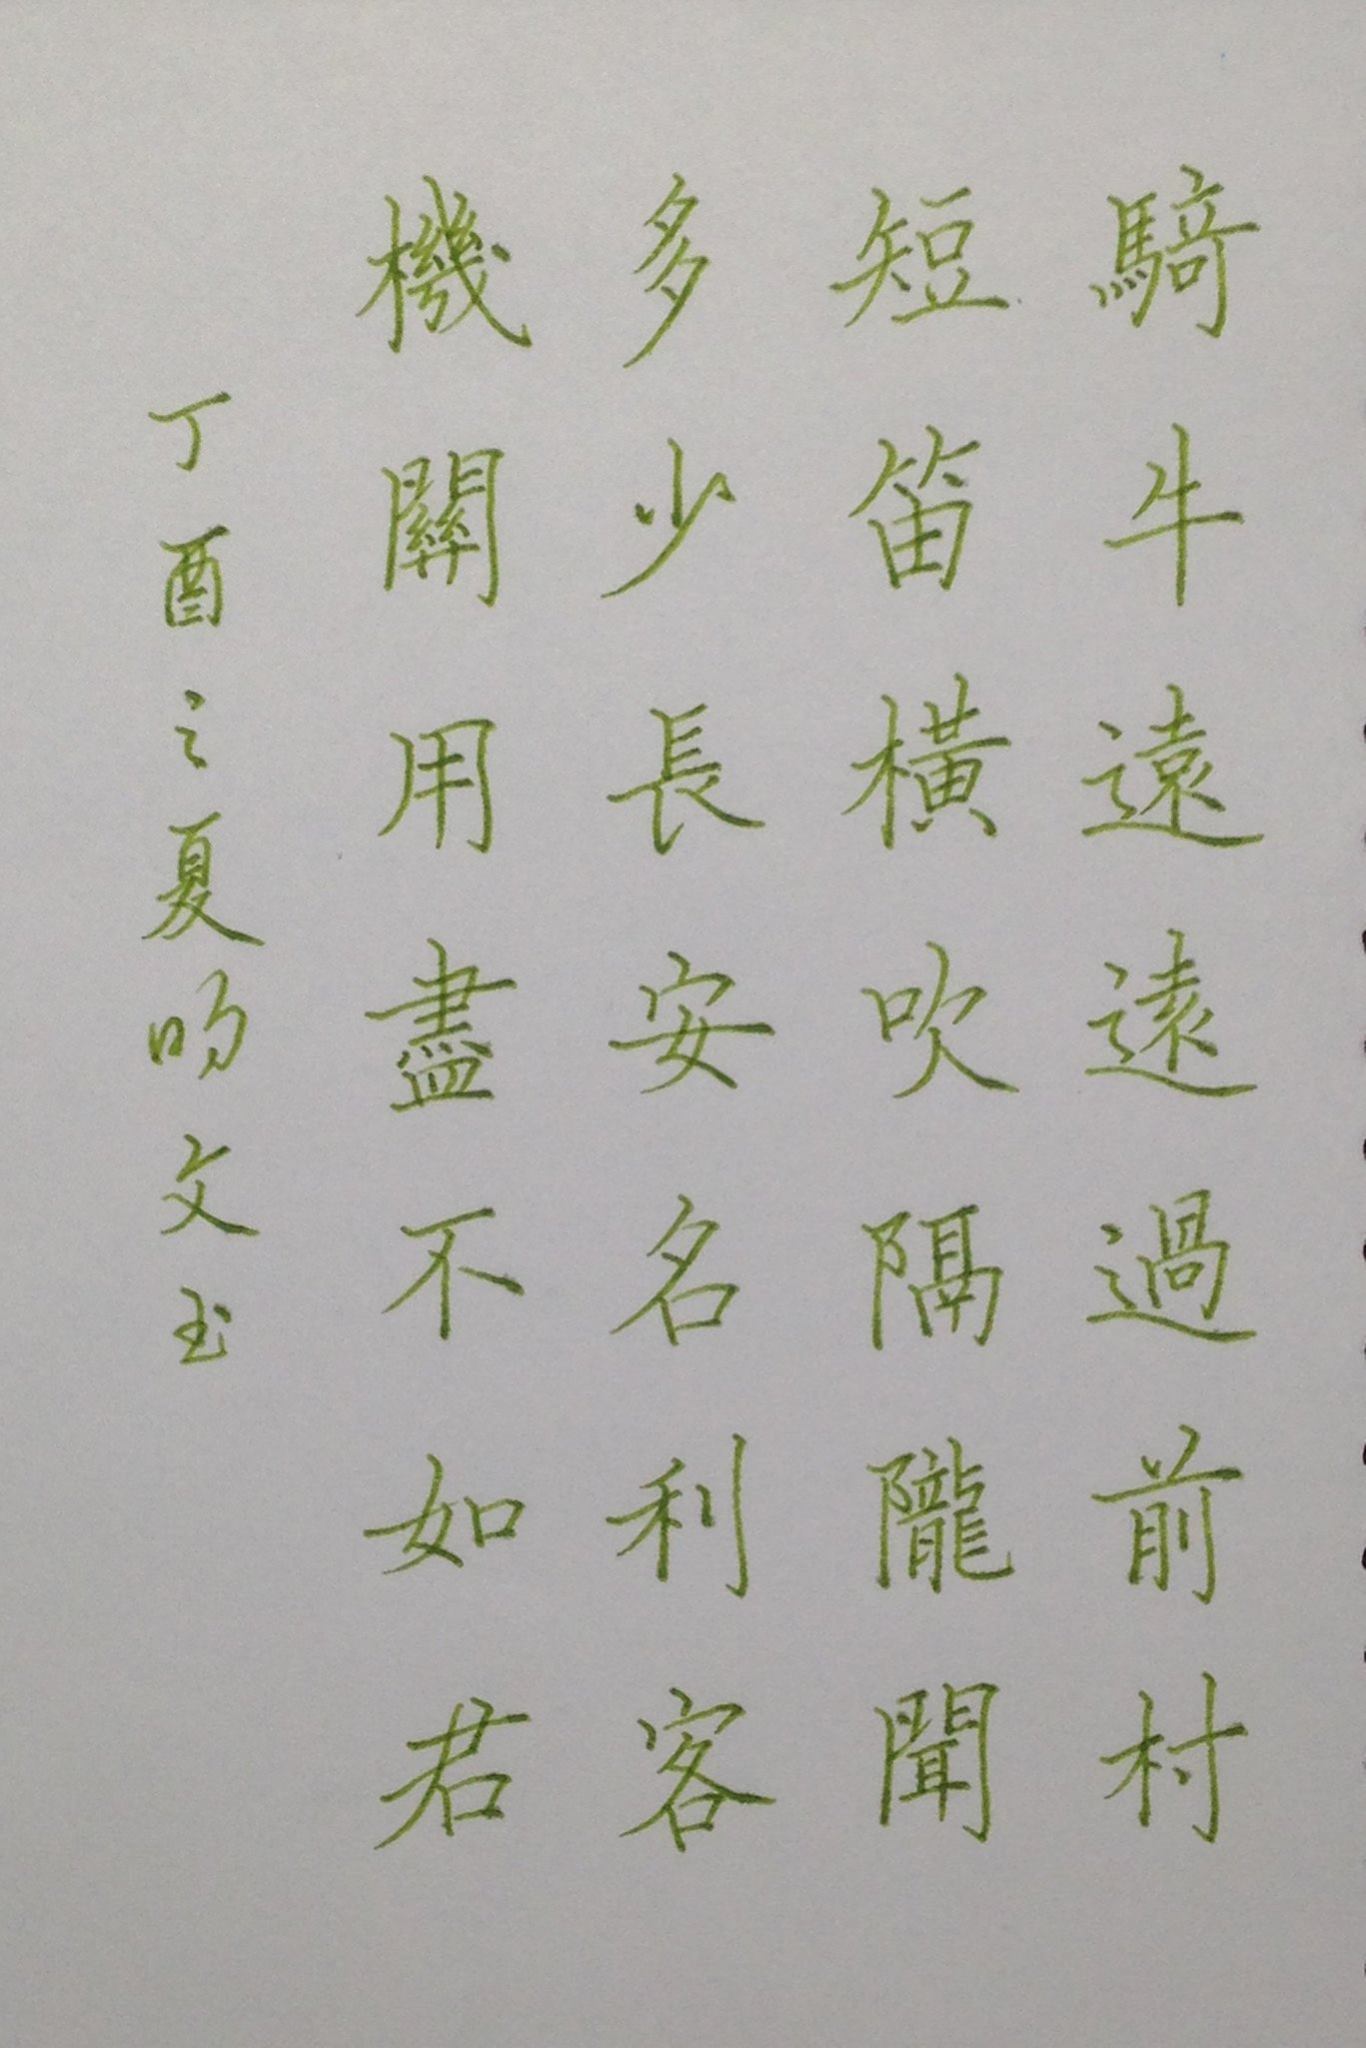 騎牛遠遠過前村
短笛橫吹隔隴聞
多少長安名利客
機關用盡不如君
丁酉之夏 文玉